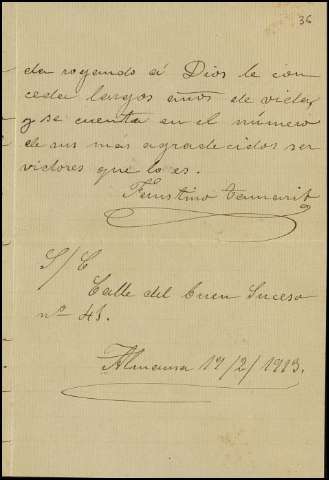 36
da rogando á Dios le con
ceda largos años de vida,
y se cuenta en el número
de sus mas agradecidos ser
vidores que lo es.
Faustino Tamarit
S/C
Calle del Buen Suceso
nº 41.
Almansa 19/2/1913.